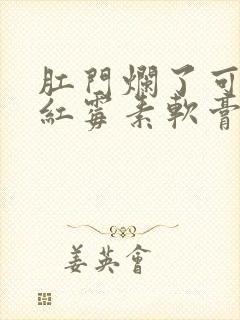 肛門爛了可
紅霉素軟膏
姜英會